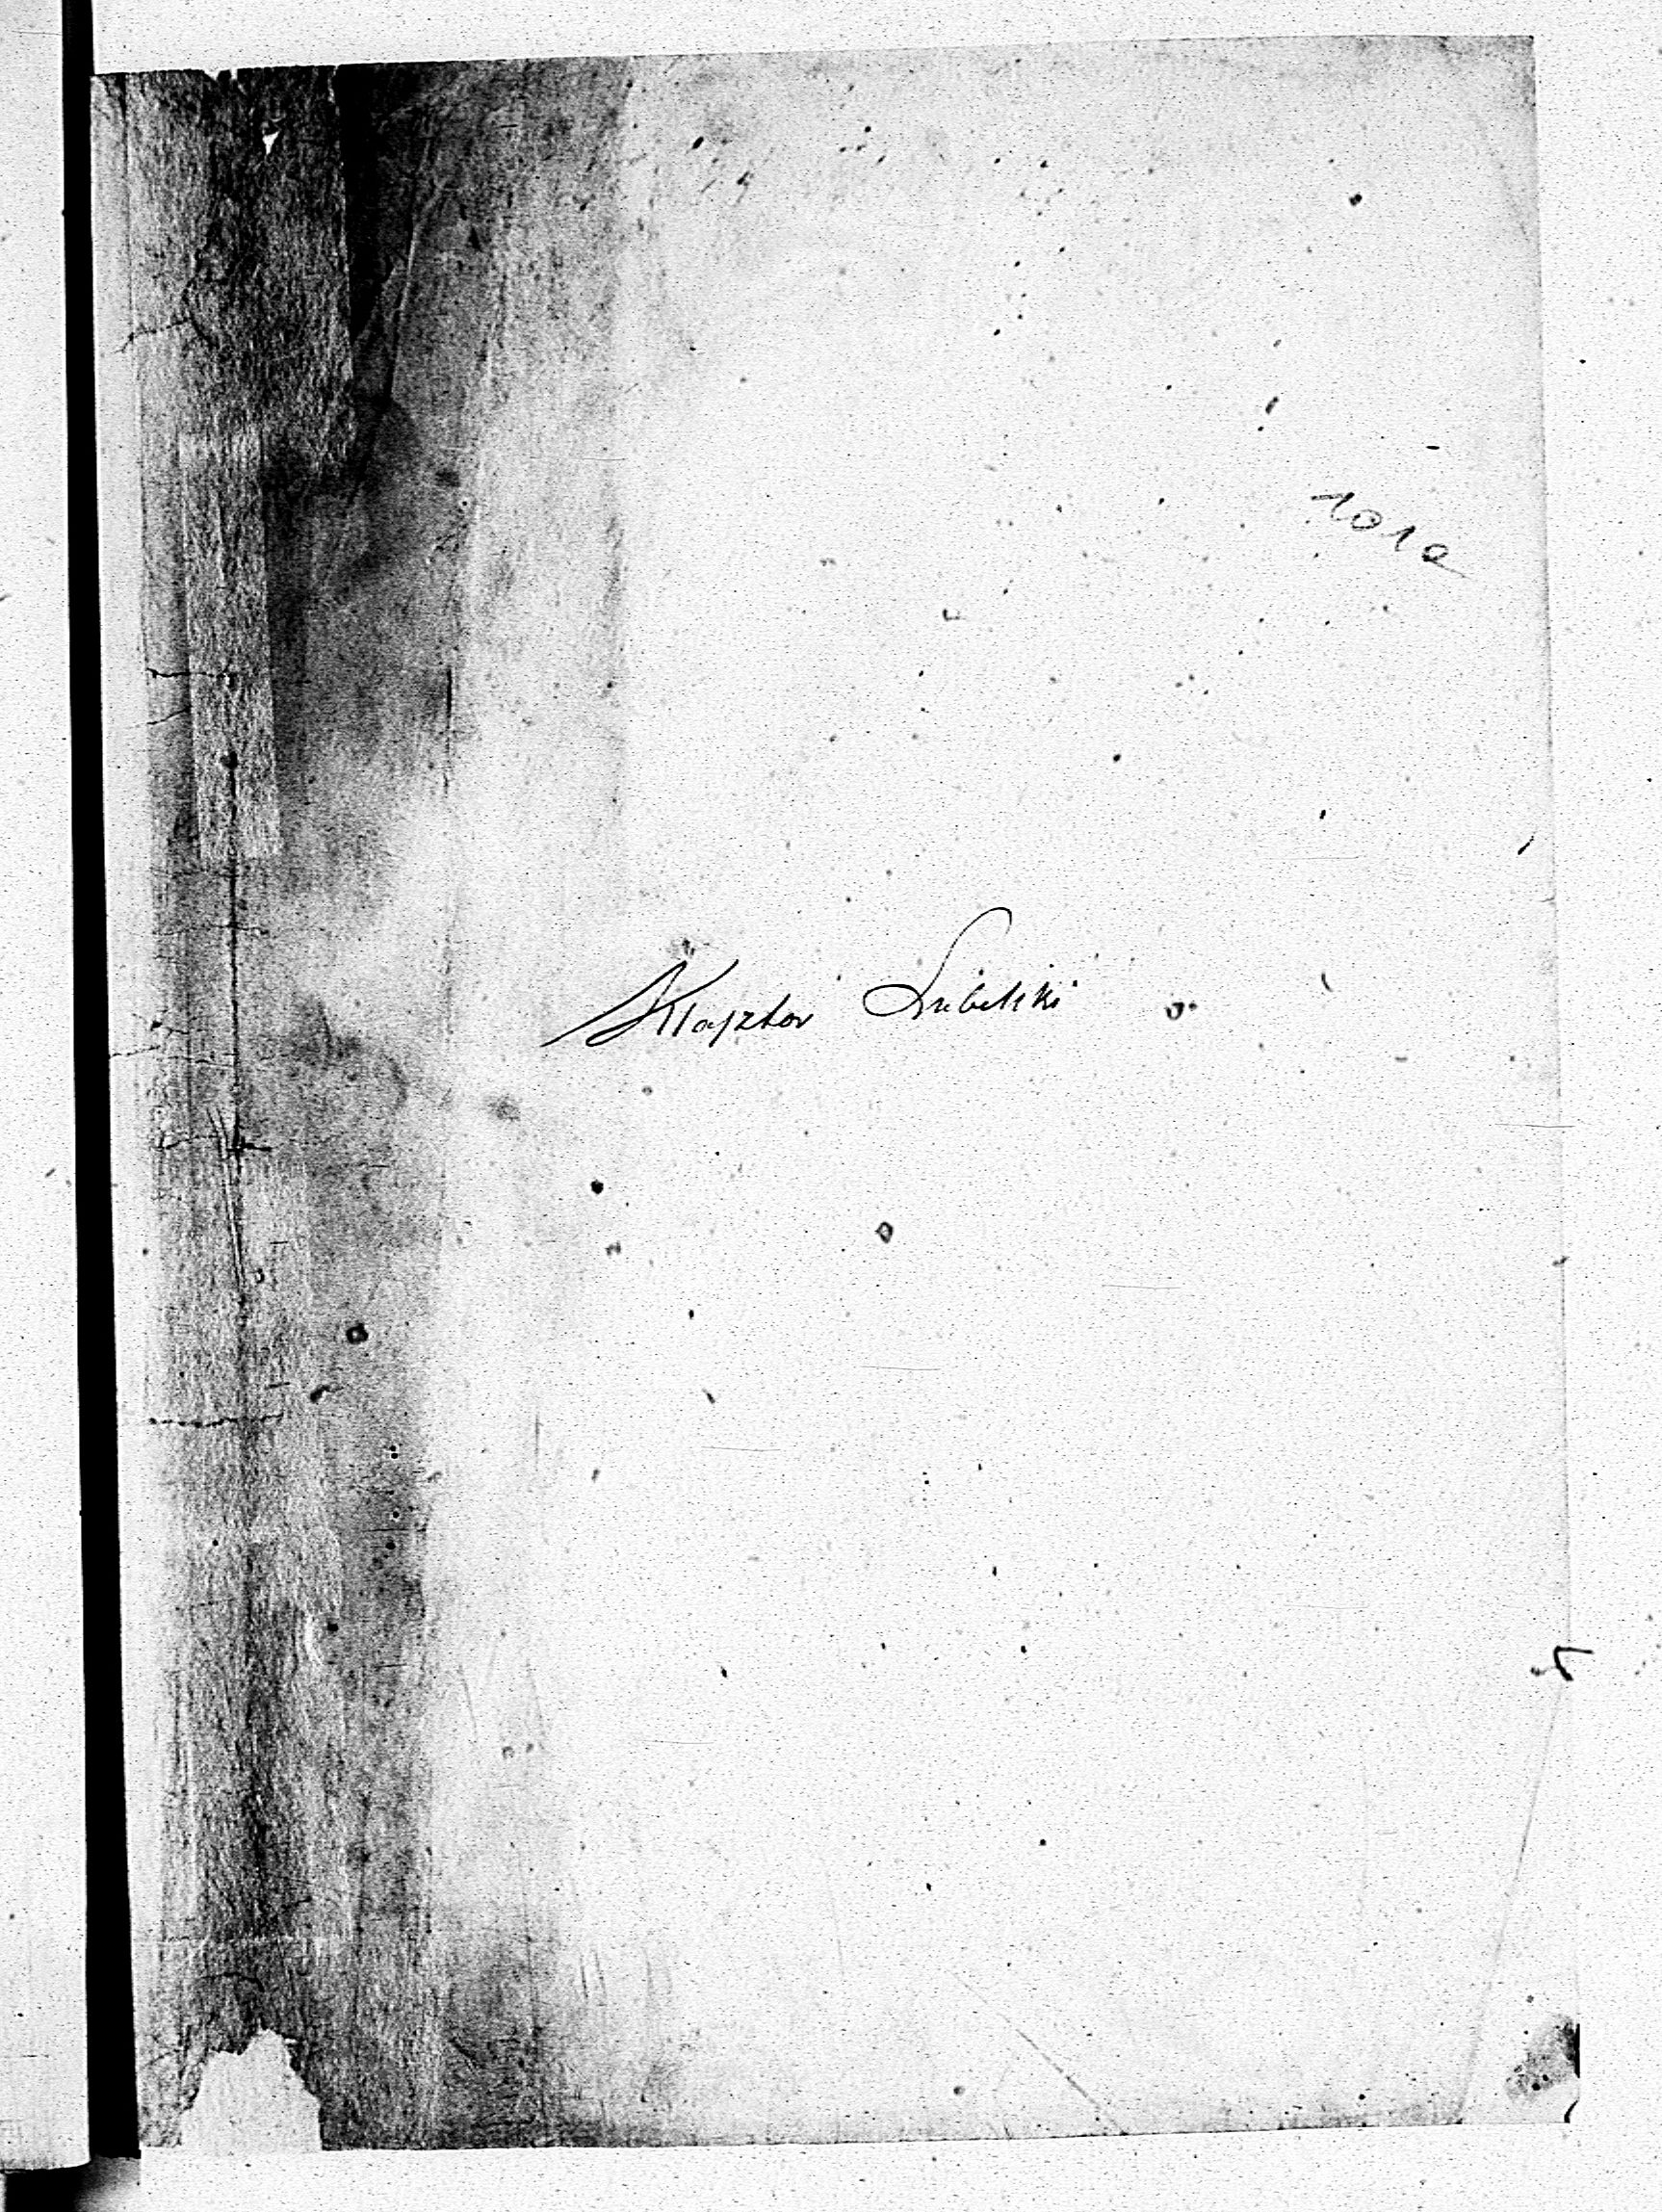 1012
Klasztor Lubelski